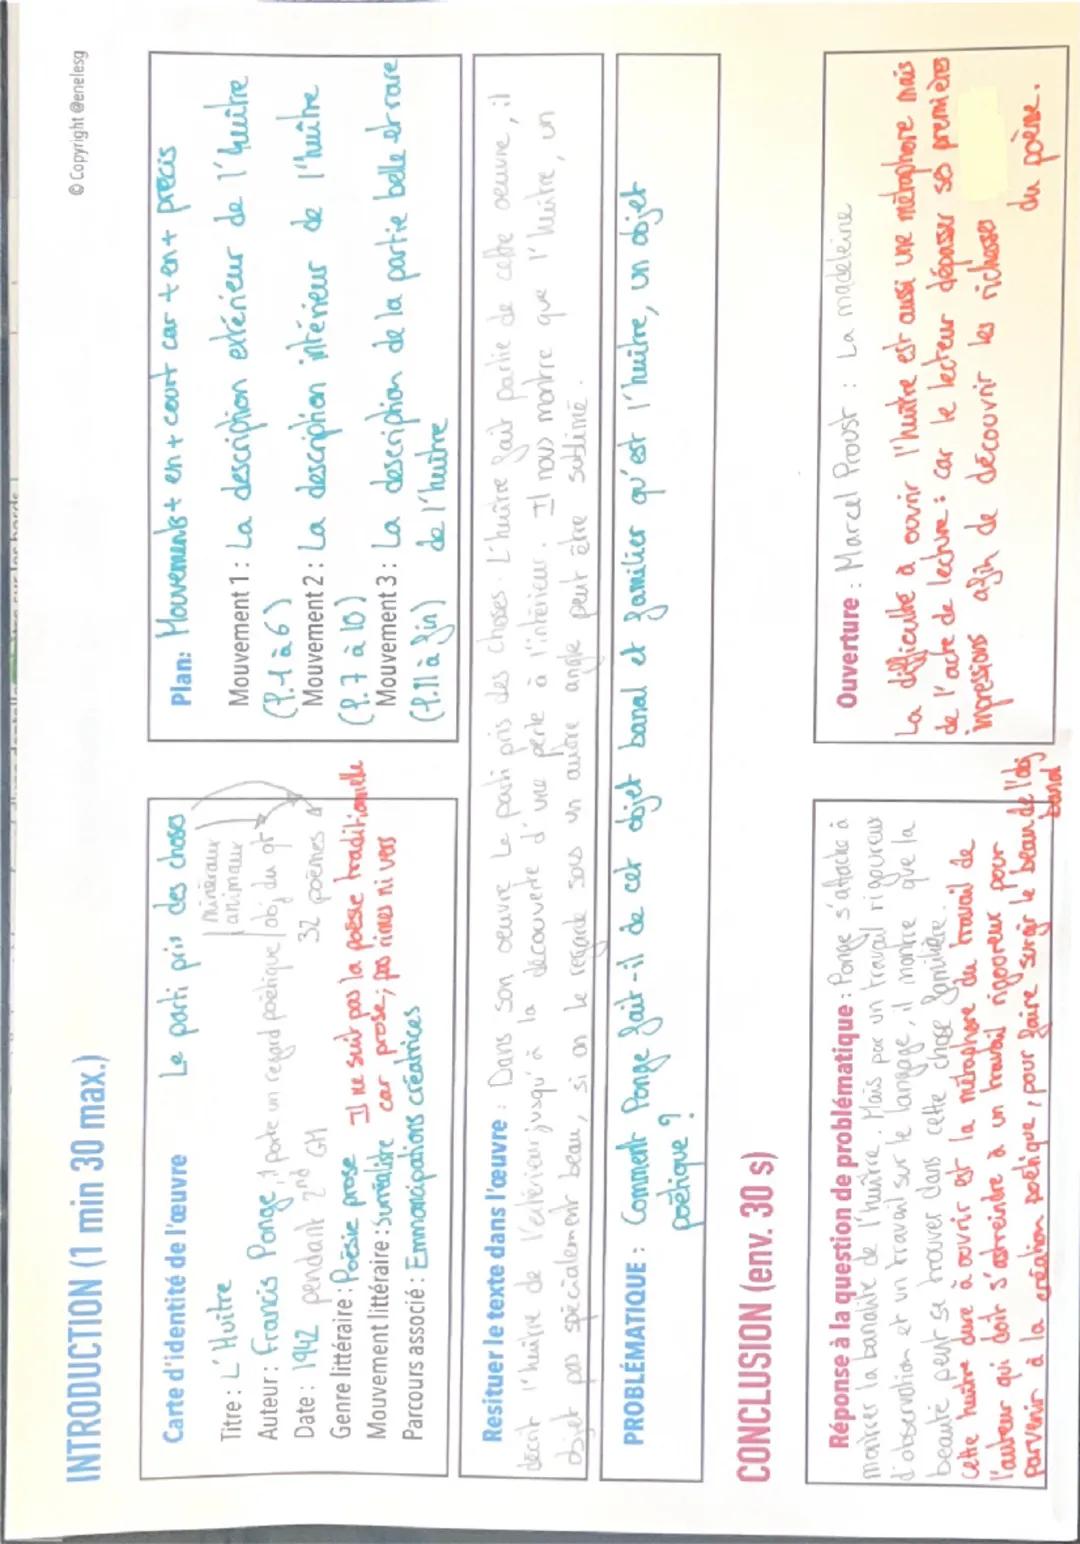 © Copyright @enelesg
INTRODUCTION (1 min 30 max.)
Carte d'identité de l'œuvre
Le parti pris des choses
Titre : L'Huître
minéraux
animaux
Auteur : Francis Ponge, il porte un regard poétique / obj du qt
Date : 1942 pendant 2nd GM
32 poèmes
Genre littéraire : Poésie prose
Il ne suit pas la poésie traditionnelle
Mouvement littéraire : Surréaliste
car prose ; pas rimes ni vers
Parcours associé : Emmancipations créatrices
Plan: Mouvements + en + court car + en + précis
Mouvement 1 : La description extérieur de l'huître
(l.1 à 6)
Mouvement 2 : La description intérieur de l'huître
(l.7 à 10)
Mouvement 3 : La description de la partie belle et rare
(l.11 à fin) de l'huître
Resituer le texte dans l'œuvre : Dans son oeuvre Le parti pris des choses. L'huître fait partie de cette oeuvre, il
décrit l'huître de l'extérieur jusqu'à la découverte d'une perle à l'intérieur. Il nous montre que l'huître, un
objet pas spécialement beau, si on le regarde sous un autre angle peut être sublimé.
PROBLÉMATIQUE : Comment Ponge fait-il de cet objet banal et familier qu'est l'huître, un objet
poétique ?
CONCLUSION (env. 30 s)
Réponse à la question de problématique : Ponge s'attache à
montrer la banalité de l'huître. Mais par un travail rigoureux
d'observation et un travail sur le langage, il montre que la
beauté peut se trouver dans cette chose familière.
cette huître dure à ouvrir est la métaphore du travail de
l'auteur qui doit s'astreindre à un travail rigoureux pour
parvenir à la création poétique, pour faire surgir le beau de l'obj
banal
Ouverture : Marcel Proust : La madeleine
La difficulté à ouvrir l'huître est aussi une métaphore mais
de l'acte de lecture : car le lecteur dépasser ses premières
impressions afin de découvrir les richesses
du poème.